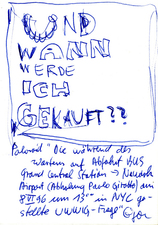 UND
WANN
WERDE
ICH
GEKAUFT??
Polaroid "Die während des
Wartens auf Abfahrt BUS
Grand Central Station → Newark
Airport (Abholung Paolo Girotto) am
8 VI 96 um 13°° in NYC ge-
stellte UWWIG-Frage"